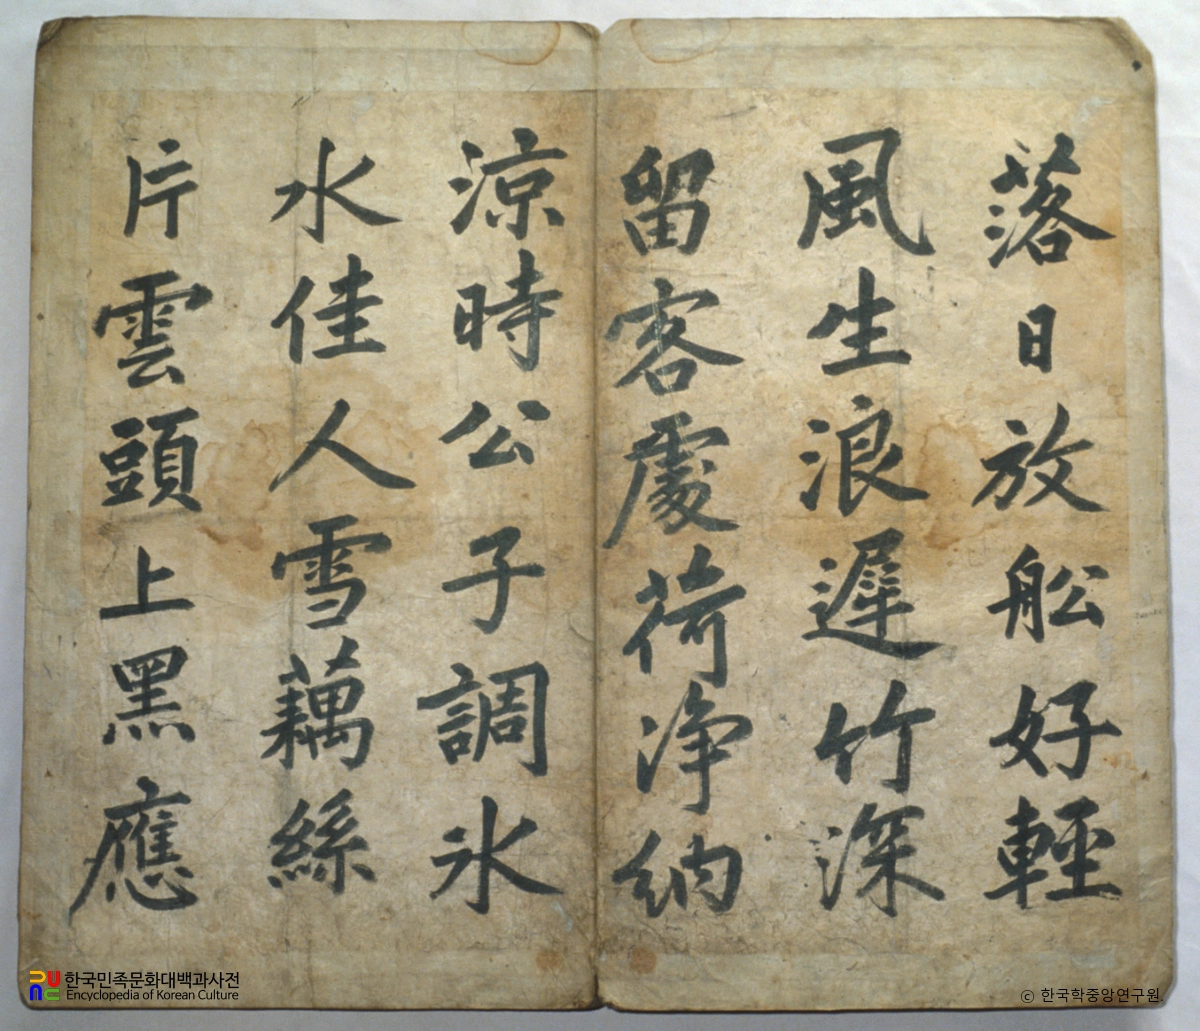 落日放舩好輕
風生浪遲竹深
留客處荷淨納
涼時公子調氷
水佳人雪藕絲
片雲頭上黑應
한국민족문화대백과사전
Encyclopedia of Korean Culture
ⓒ 한국학중앙연구원.